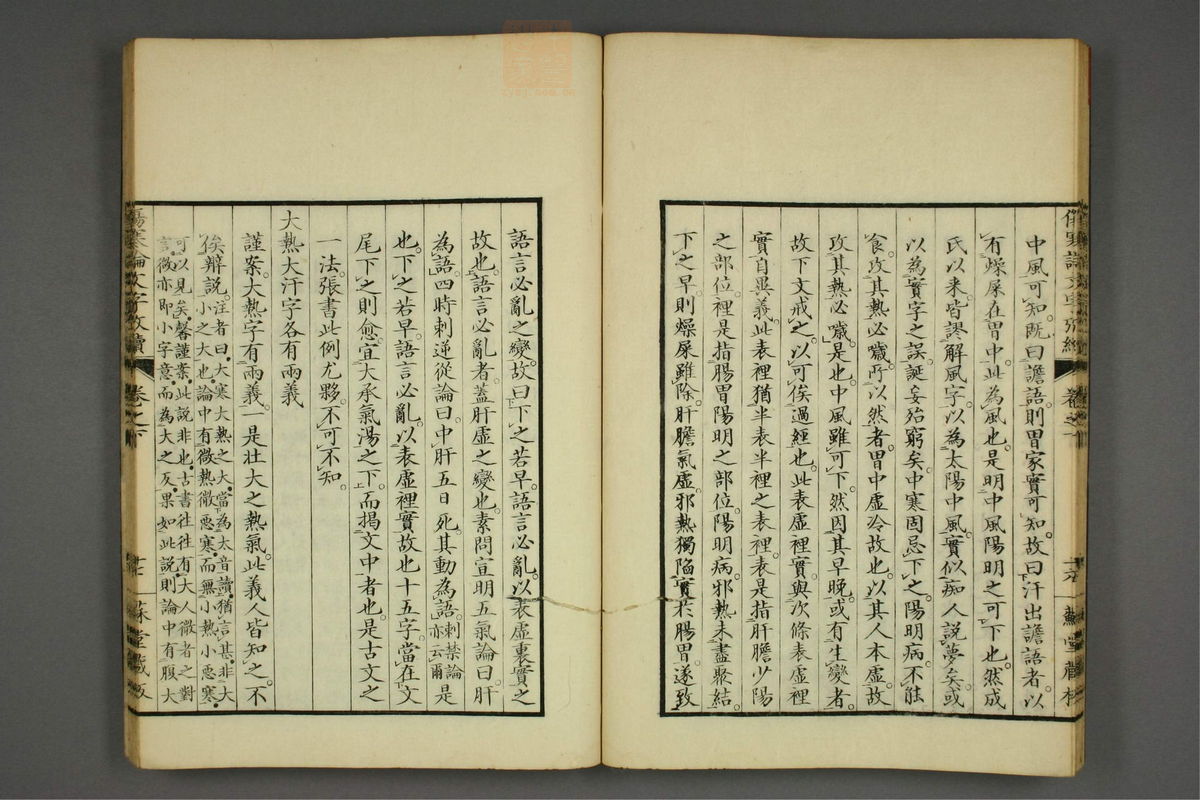 中風可知。既曰譫語。則胃家實可知。故曰汗出譫語者。以
有燥屎在胃中。此為風也。是明中風陽明之可下也。然成
氏以來。皆謬解風字。以為太陽中風。實似痴人說夢矣。或
以為實字之誤。誕妄殆窮矣。中寒固忌下之。陽明病。不能
食。攻其熱必噦。所以然者。胃中虛冷故也。以其人本虛。故
攻其熱必噦。是也。中風雖可下。然因其早晚。或有生變者。
故下文戒之。以可俟過經也。此表虛裡實。與次條表虛裡
實自異義。此表裡猶半表半裡之表裡。表是指肝膽少陽
之部位。裡是指腸胃陽明之部位。陽明病。邪熱未盡聚結。
下之早。則燥屎雖除。肝膽氣虛。邪熱獨陷。實於腸胃。遂致
語言必亂之變。故曰下之若早。語言必亂。以表虛裏實之
故也。語言必亂者。蓋肝虛之變也。素問宣明五氣論曰。肝
為語。四時刺逆從論曰。中肝五日死。其動為語。刺禁論亦云爾是
也。下之若早。語言必亂。以表虛裡實故也十五字。當在文
尾下之則愈。宜大承氣湯之下。而揭文中者也。是古文之
一法。張書此例尤夥。不可不知。
大熱大汗字各有兩義
謹案。大熱字有兩義。一是壯大之熱氣。此義人皆知之。不
俟辨說。注者曰。大寒大熱之大。當為太音讀。猶言甚。非大
小之大也。論中有微熱微惡寒。而無小熱小惡寒。
可以見矣。馨謹案。此說非也。古書往往有大人微者之對
言。微亦即小字意。而為大之反。果如此說。則論中有腹大
傷寒論文字攷續
卷之下
蘇堂藏板